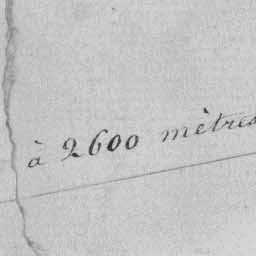 à 2600 mètres